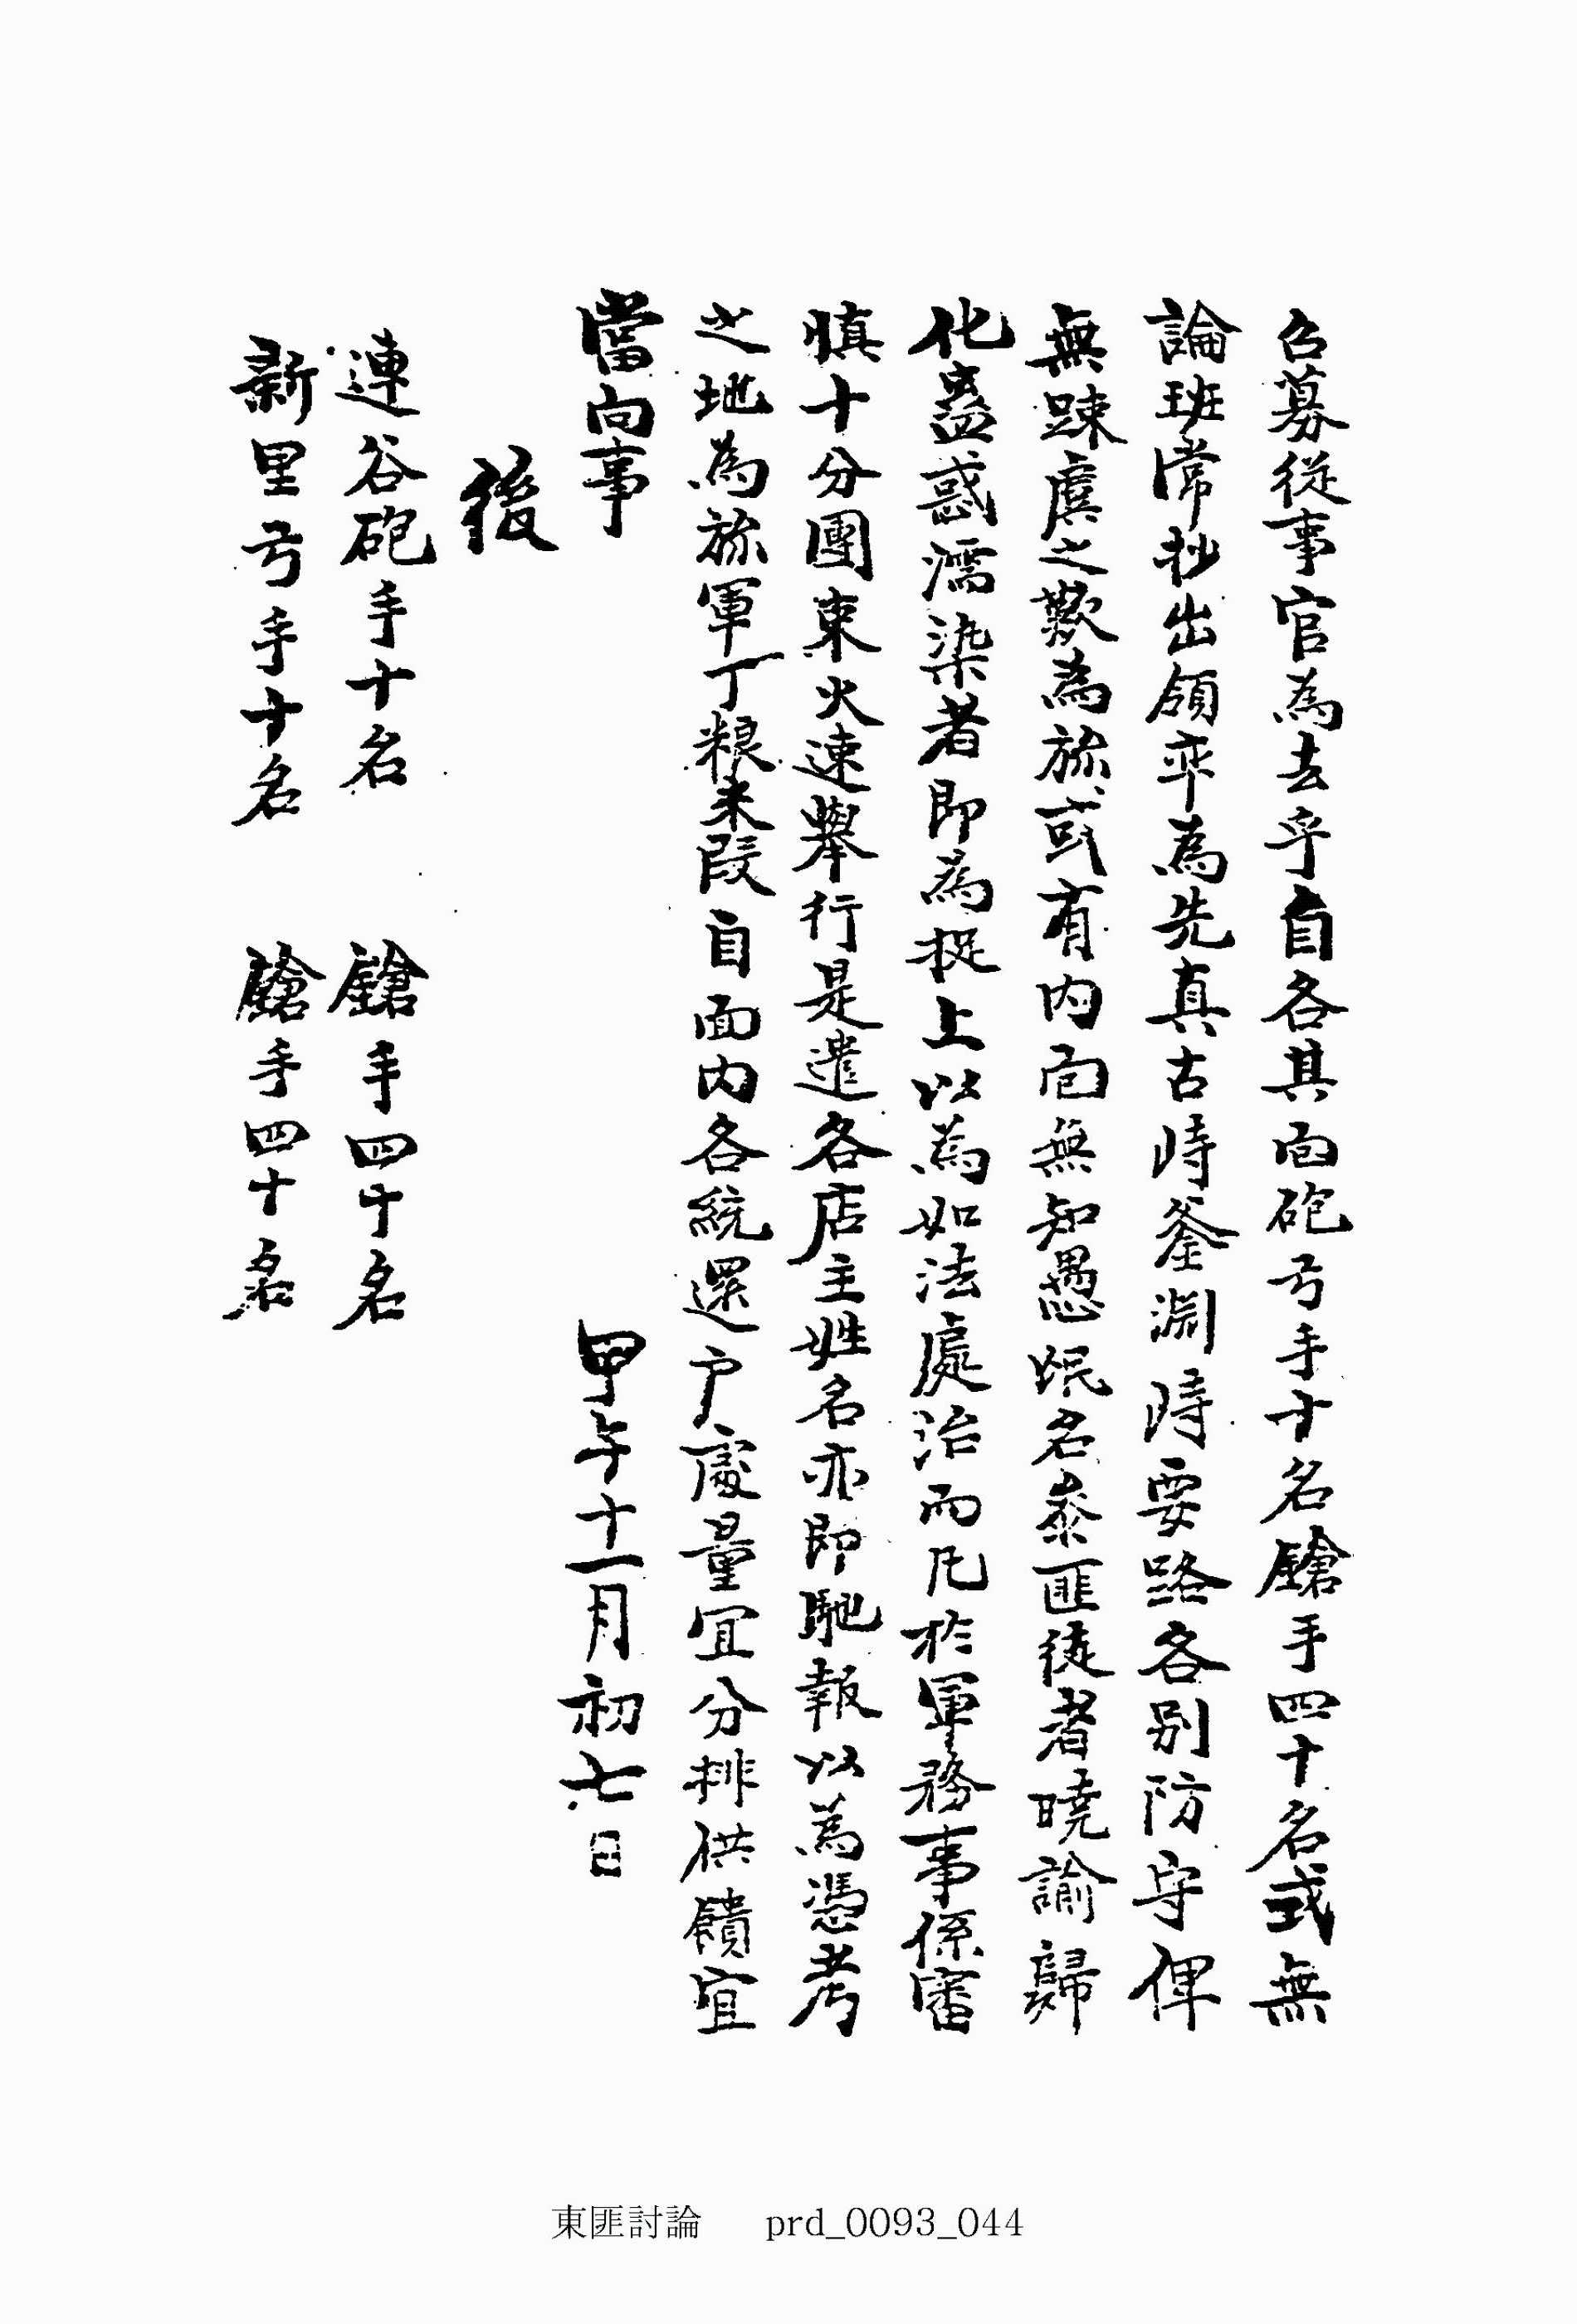 召募從事官為去乎自各其面砲弓手十名鎗手四十名式無
論班常抄出領率為先真古時釜淵時要路各別防守俾
無踈虞之歎為旀或有內面無知愚氓名叅匪徒者曉諭歸
化蠱惑濡染者即為捉上以為如法處治而凡於軍務事係審
愼十分團束火速擧行是遣各店主姓名亦即馳報以為憑考
之地為旀軍丁粮米段自面內各統還戶處量宜分排供饋宜
當向事
甲午十一月初七日
後
連谷砲手十名 鎗手四十名
新里弓手十名 鎗手四十名
東匪討論 prd_0093_044